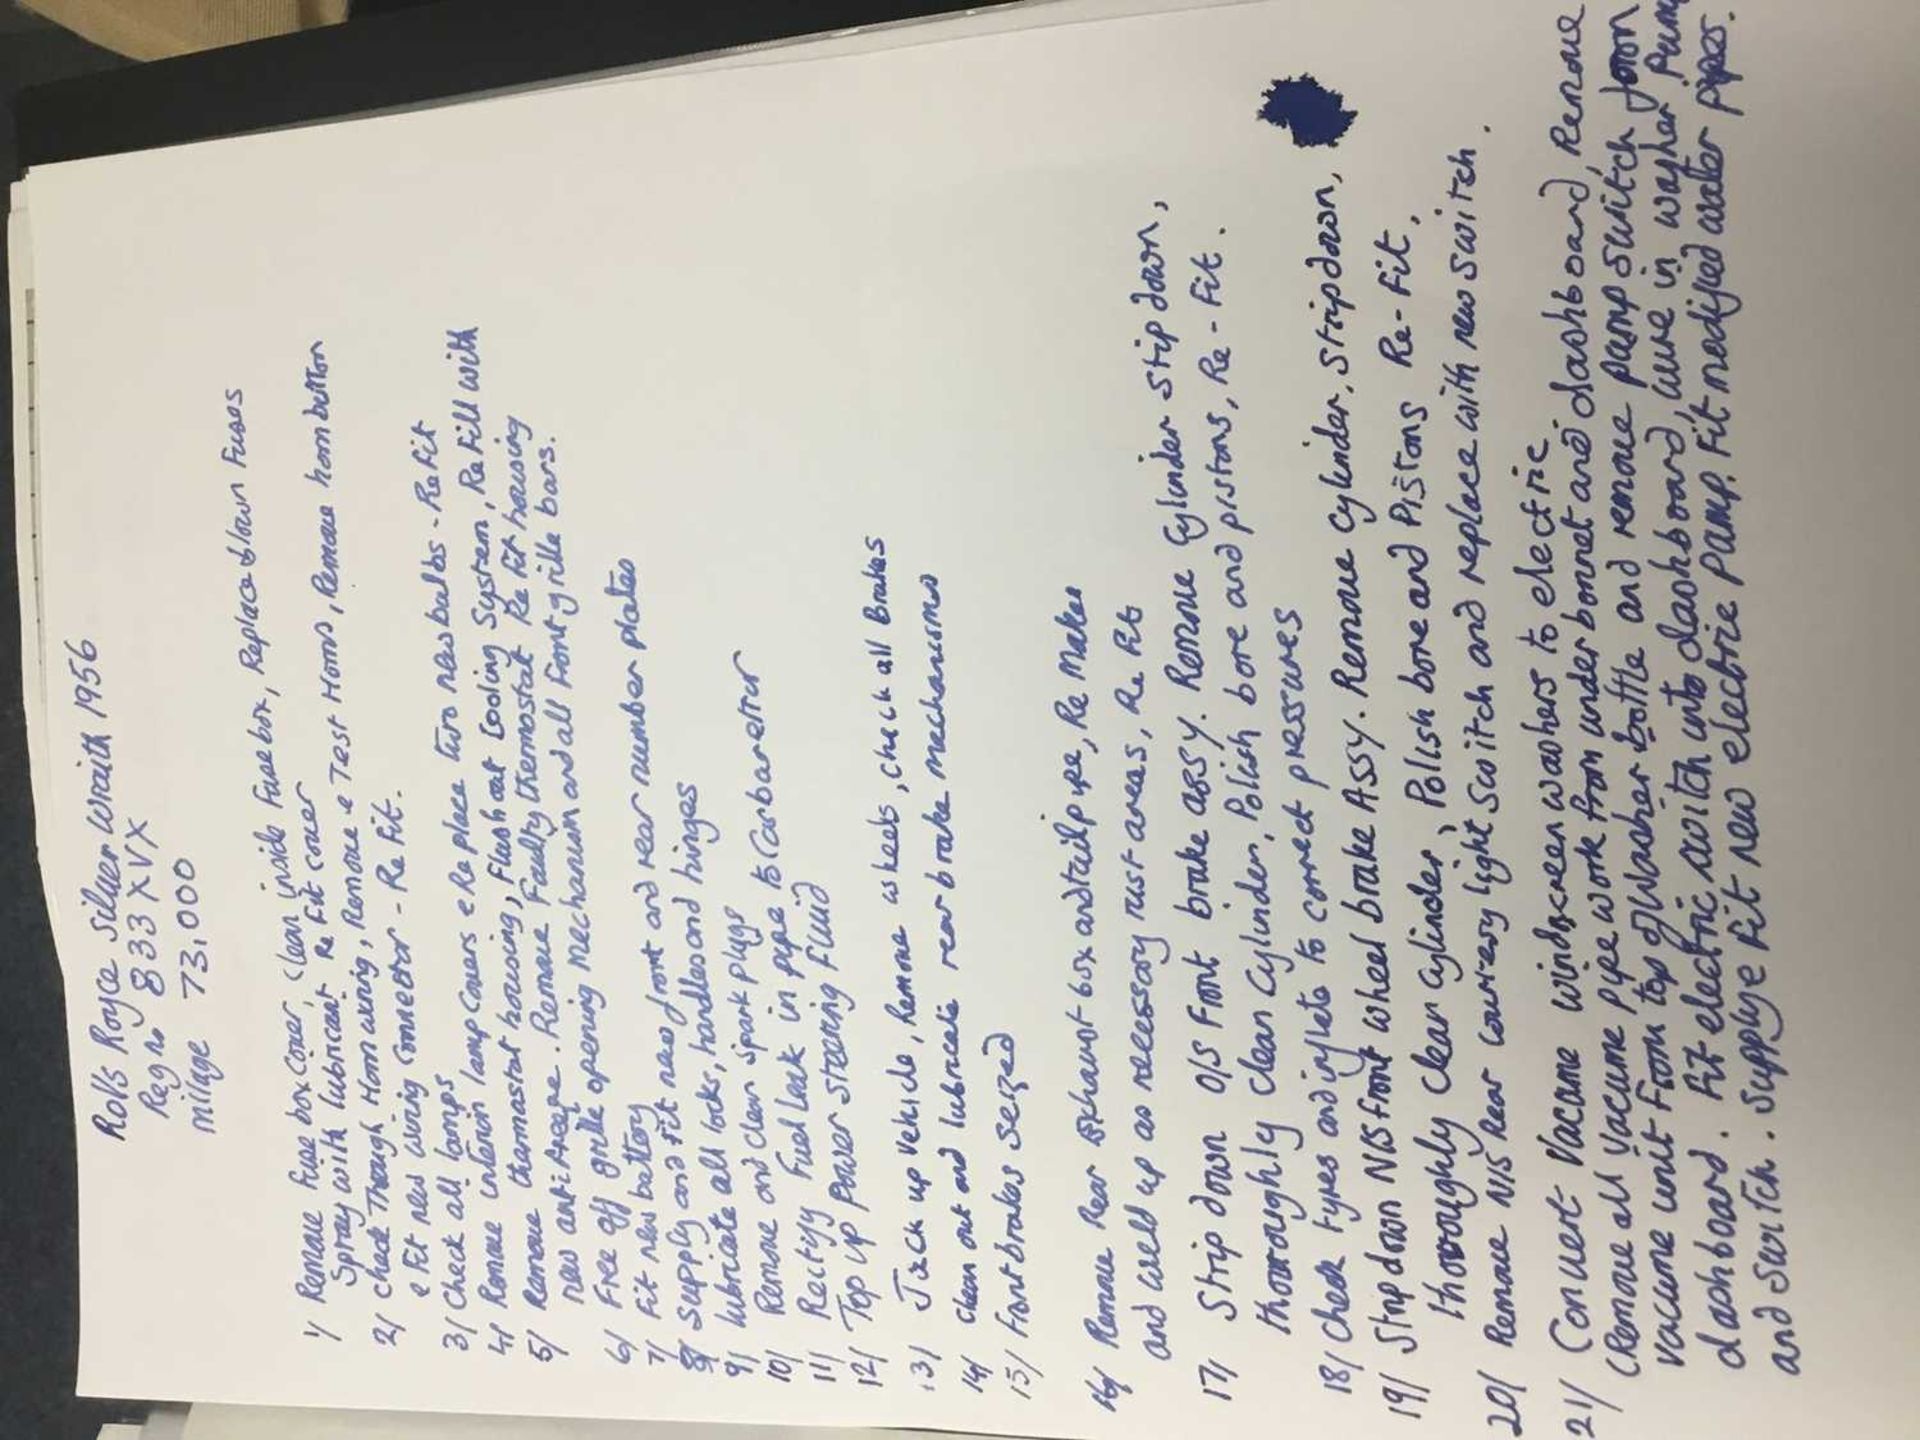 Rolls Royce Silver Wraith 1956
Reg no 833 XVX
milage 73,000
1/ Remove Fuse box cover, clean inside Fusebox, Replace blown Fuses
Spray with lubricant Re Fit cover
2/ check Through Horn wiring, Remove e Test Horns, Remove horn button
e Fit new wiring connector - Re Fit.
3/ Check all lamps
4/ Remove interior lamp covers e Replace two new bulbs - Re Fit
5/ Remove thermostat housing, Flush out Cooling System, Re Fill with
new anti Freeze. Remove Faulty thermostat Re Fit housing
6/ Free off grille opening mechanism and all Front grille bars.
7/ Fit new battery
8/ Supply and Fit new front and rear number plates
9/ lubricate all locks, handles and hinges
10/ Remove and clean spark plugs
11/ Rectify Fuel Leak in pipe to Carburettor
12/ Top up Power steering Fluid
13/ Jack up vehicle, Remove wheels, check all Brakes
14/ Clean out and lubricate rear brake mechanisms
15/ Front brakes seized
16/ Remove Rear Exhaust box and tailpipe, Re Makes
and weld up as necessary rust areas, Re Fit
17/ Strip down O/S Front brake assy. Remove Cylinder Strip down,
thoroughly clean Cylinder, Polish bore and pistons, Re-Fit.
18/ Check tyres and inflate to correct pressures
19/ Strip down N/S Front wheel brake Assy. Remove Cylinder, Strip down,
thoroughly clean Cylinder, Polish bore and Pistons Re-Fit.
20/ Remove N/S Rear courtesy light Switch and replace with new switch.
21/ Convert Vacume windscreen washers to electric
(Remove all vacume pipe work from under bonnet and dashboard, Remove
vacume unit From top of Washer bottle and remove pump switch from
dashboard. Fit electric switch into dashboard, wire in washer Pump
and Switch. Supply e Fit new electric Pump. Fit modified water pipes.